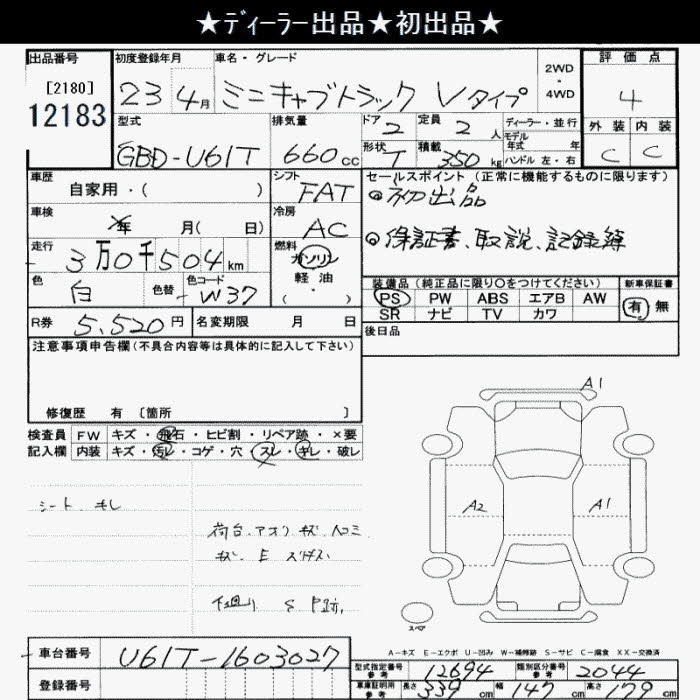 ★ディーラー出品★初出品★
出品番号 初度登録年月 車名・グレード 2WD・4WD 評価点
[2180] 12183
23 4月 ミニキャブトラック Vタイプ 4
型式 排気量 ドア 2 定員 2人 ディーラー・並行 外装 内装
モデル年式 年
GBD-U61T 660cc 形状 T 積載 350kg ハンドル 左・右 C C
車歴 シフト セールスポイント (正常に機能するものに限ります)
自家用・( ) FAT ◎初出品
車検 年 月( 日) 冷房 AC
走行 3万0千504km 燃料 ガソリン 軽油・( ) ◎保証書、取説、記録簿
色 白 色替 色コード W37
装備品 (純正品に限り○をつけてください) 新車保証書
PS PW ABS エアB AW 有 無
SR ナビ TV カワ
R券 5,520円 名変期限 月 日
後日品
注意事項申告欄(不具合内容等は具体的に記入して下さい)
修復歴 有 [箇所 ]
検査員 FW キズ・飛石・ヒビ割・リペア跡・×要
記入欄 内装 キズ・汚レ・コゲ・穴・スレ・キレ・破レ
A1
シート キレ
A2 A1
荷台、アオリ キズ、凹コミ
キズ、E
下廻り S P跡、
スペア
A-キズ E-エクボ U-凹み W-補修跡 S-サビ C-腐食 XX-交換済
車台番号 U61T-1603027
型式指定番号 参考 12694 類別区分番号 参考 2044
登録番号
車庫証明用 参考 長さ 339cm 幅 147cm 高さ 179cm